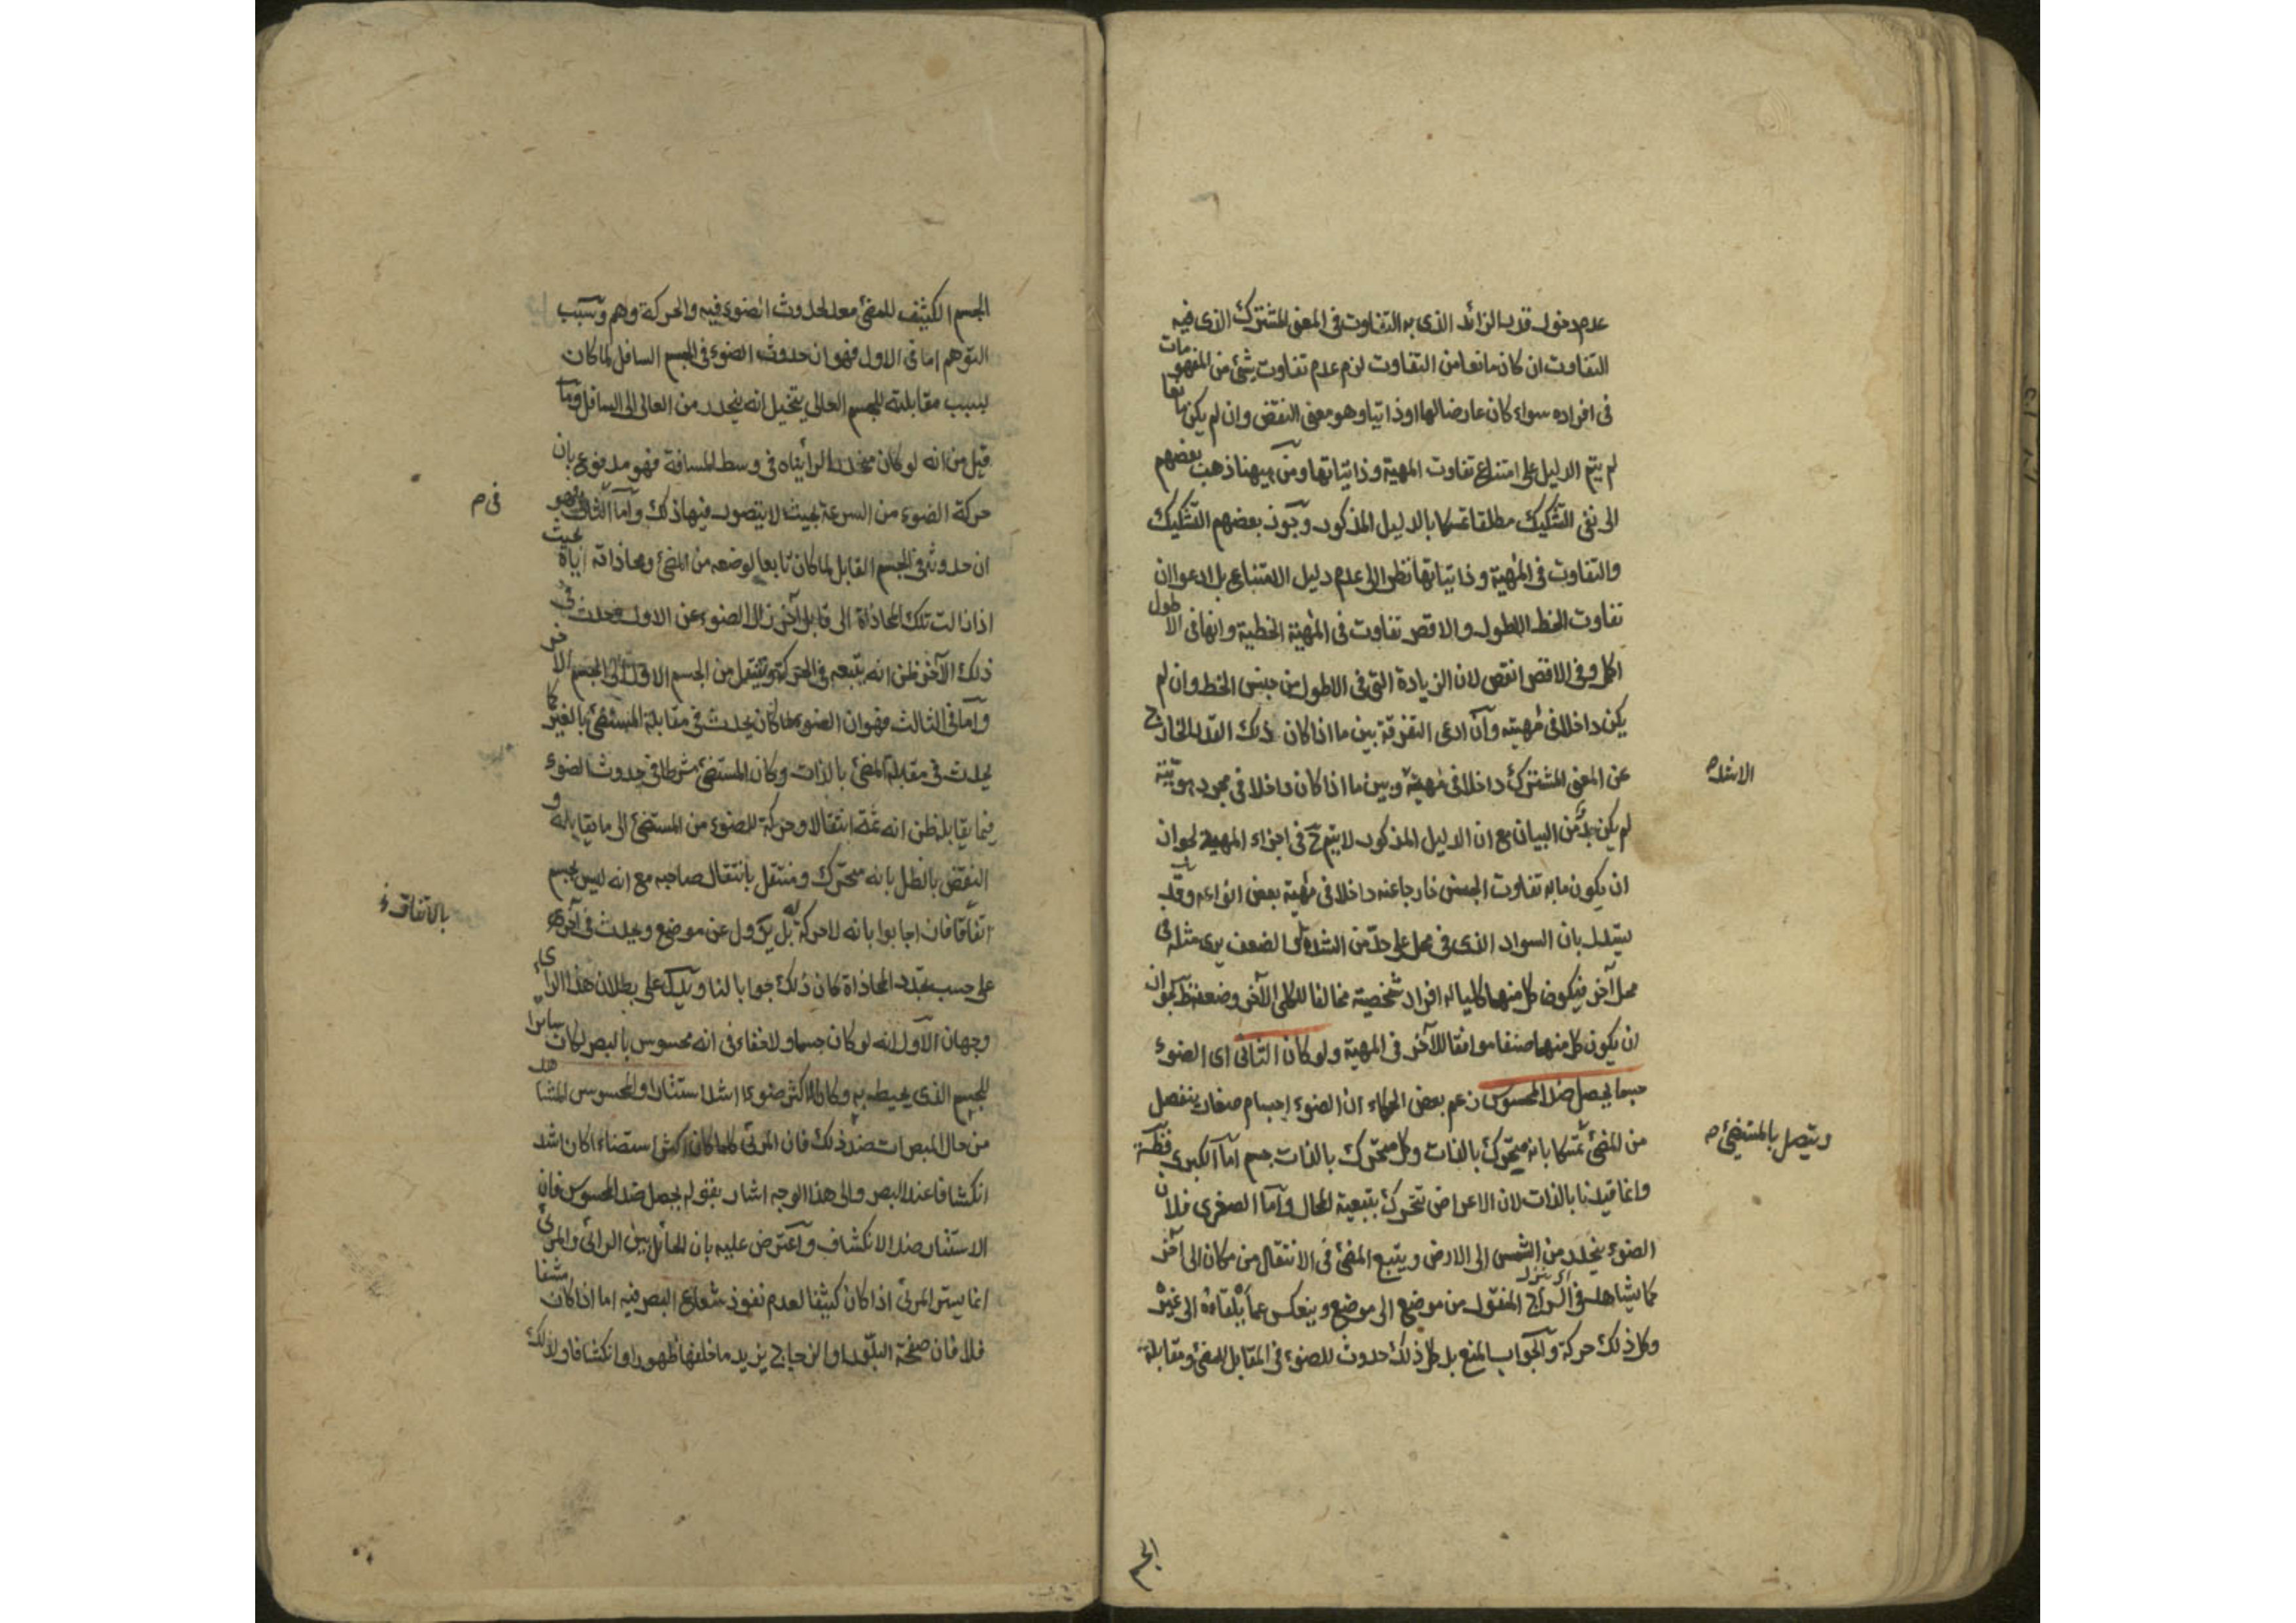 عدم دخول قدر الزائد الذى به التفاوت فى المعنى المشترك الذى فيه
التفاوت ان كان مانعا من التفاوت لزم عدم تفاوت شئ من المفهومات
فى افراده سواء كان عارضا لها او ذاتيا وهو معنى النقض وان لم يكن مانعا
لم يتم الدليل على امتناع تفاوت المهية وذاتياتها ومن هيهنا ذهب بعضهم
الى نفى التشكيك مطلقا تمسكا بالدليل المذكور وجوز بعضهم التشكيك
والتفاوت فى المهية وذاتياتها نظرا الى عدم دليل الامتناع بل ادعوا ان
تفاوت الخط الاطول والاقصر تفاوت فى المهية الخطية وانها فى الاطول
اكمل وفى الاقصر انقص لان الزيادة التى فى الاطول من جنس الخط وان لم
يكن داخلا فى مهيته وان ادعى التفرقة بين ما اذا كان ذلك القدر الخارج
عن المعنى المشترك داخلا فى مهية وبين ما اذا كان داخلا فى مجرد هويته
الاشد م
لم يكن بد من البيان مع ان الدليل المذكور لا يتم ح فى اجزاء المهية لجواز
ان يكون ما به تفاوت الجنس خارجا عنه داخلا فى مهية بعض انواعه وقد
يستدل بان السواد الذى فى محل على حد من الشدة والضعف يرى مثله فى
محل آخر فيكون كل منهما كليا له افراد شخصية مخالفا للكلى الآخر وضعفه ظ لجواز
ان يكون كل منهما صنفا موافقا للآخر فى المهية ولو كان الثانى اى الضوء
جسما لحصل ضد المحسوس زعم بعض الحكماء ان الضوء اجسام صغار ينفصل
من المضئ تمسكا بانه متحرك بالذات وكل متحرك بالذات جسم اما الكبرى فظة
ويتصل بالمستضئ م
وانما قيدنا بالذات لان الاعراض تتحرك بتبعية المحال واما الصغرى فلان
الضوء ينحدر من الشمس الى الارض ويتبع المضئ فى الانتقال من مكان الى آخر
كما يشاهد فى السراج المنقول من موضع الى موضع وينعكس عما يلقاه الى غيره
وكل ذلك حركة والجواب المنع بل كل ذلك حدوث للضوء فى المقابل للمضئ ومقابلة
الجسم
الجسم الكثيف للمضئ معد لحدوث الضوء فيه والحركة وهم وسبب
التوهم اما فى الاول فهو ان حدوث الضوء فى الجسم السافل لما كان
بسبب مقابلته للجسم العالى يتخيل انه ينحدر من العالى الى السافل وما
قيل من انه لو كان منحدرا لرأيناه فى وسط المسافة فهو مدفوع بان
حركة الضوء من السرعة بحيث لا يتصور فيها ذلك واما الثانى فهو
فى م
ان حدوثه فى الجسم القابل لما كان تابعا لوضعه من المضئ ومحاذاته اياه بحيث
اذا زالت تلك المحاذاة الى قابل آخر زال الضوء عن الاول وحدث فى
ذلك الآخر ظن انه يتبعه فى الحركة وينتقل من الجسم الاول الى الجسم الآخر
واما فى الثالث فهو ان الضوء لما كان يحدث فى مقابلة المستضئ بالغير كما
يحدث فى مقابلة المضئ بالذات وكان المستضئ شرطا فى حدوث الضوء
فيما يقابله ظن انه ثمة انتقالا وحركة للضوء من المستضئ الى ما يقابله و
النقض بالظل بانه متحرك ومنتقل بانتقال صاحبه مع انه ليس بجسم
بالاتفاق خ
اتفاقا فان اجابوا بانه لا حركة له بل يزول عن موضع ويحدث فى آخر
على حسب تجدد المحاذاة كان ذلك جوابا لنا ويدل على بطلان هذا الرأى
وجهان الاول انه لو كان جسما ولا خفاء فى انه محسوس بالبصر لكان ساترا
للجسم الذى يحيط به وكان الاكثر ضوءا اشد استتارا والمحسوس المشاهد
من حال المبصرات ضد ذلك فان المرئى كلما كان اكثر استضاءة كان اشد
انكشافا عند البصر والى هذا الوجه اشار بقوله لحصل ضد المحسوس فان
الاستتار ضد الانكشاف واعترض عليه بان الحائل بين الرائى والمرئى
انما يستر المرئى اذا كان كثيفا لعدم نفوذ شعاع البصر فيه اما اذا كان شفا
فلا فان صفحة البلور او الزجاج يزيد ما خلفها ظهورا وانكشافا ولذلك